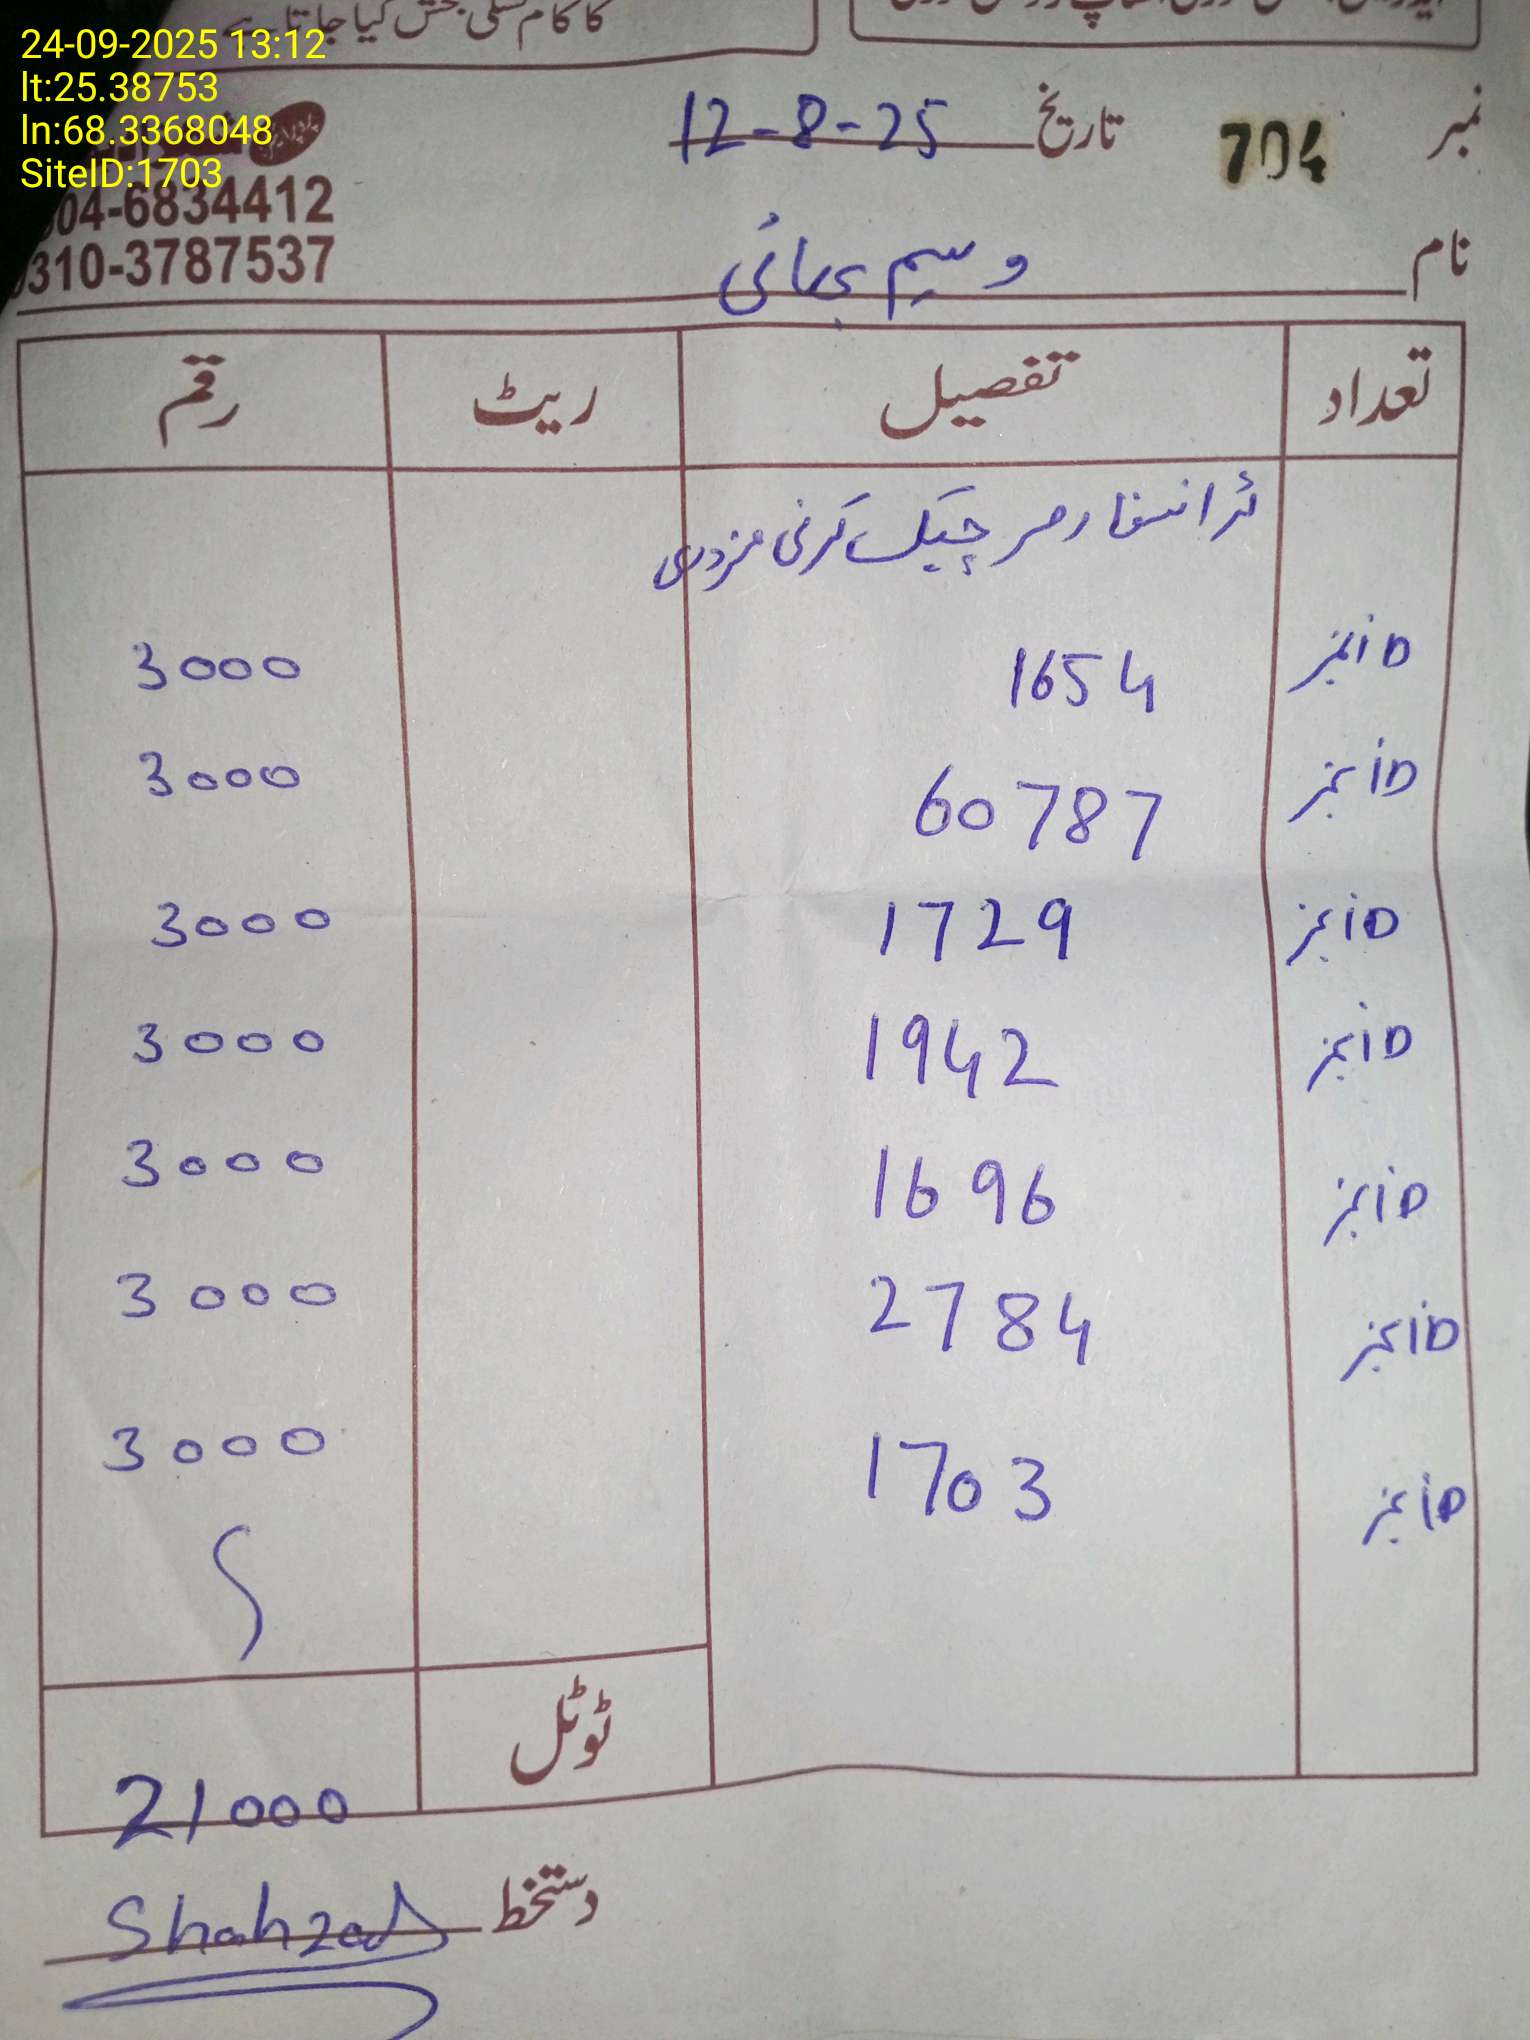 کا کام تسلی بخش کیا جاتا ہے
24-09-2025 13:12
lt:25.38753
ln:68.3368048
SiteID:1703
نمبر 704 تاریخ 12-8-25
04-6834412
310-3787537
نام وسیم بھائی
تعداد تفصیل ریٹ رقم
ٹرانسفارمر چیک کرنی مزدوری
iD نمبر 1654 3000
iD نمبر 60787 3000
iD نمبر 1729 3000
iD نمبر 1942 3000
iD نمبر 1696 3000
iD نمبر 2784 3000
iD نمبر 1703 3000
ٹوٹل 21000
دستخط Shahzad